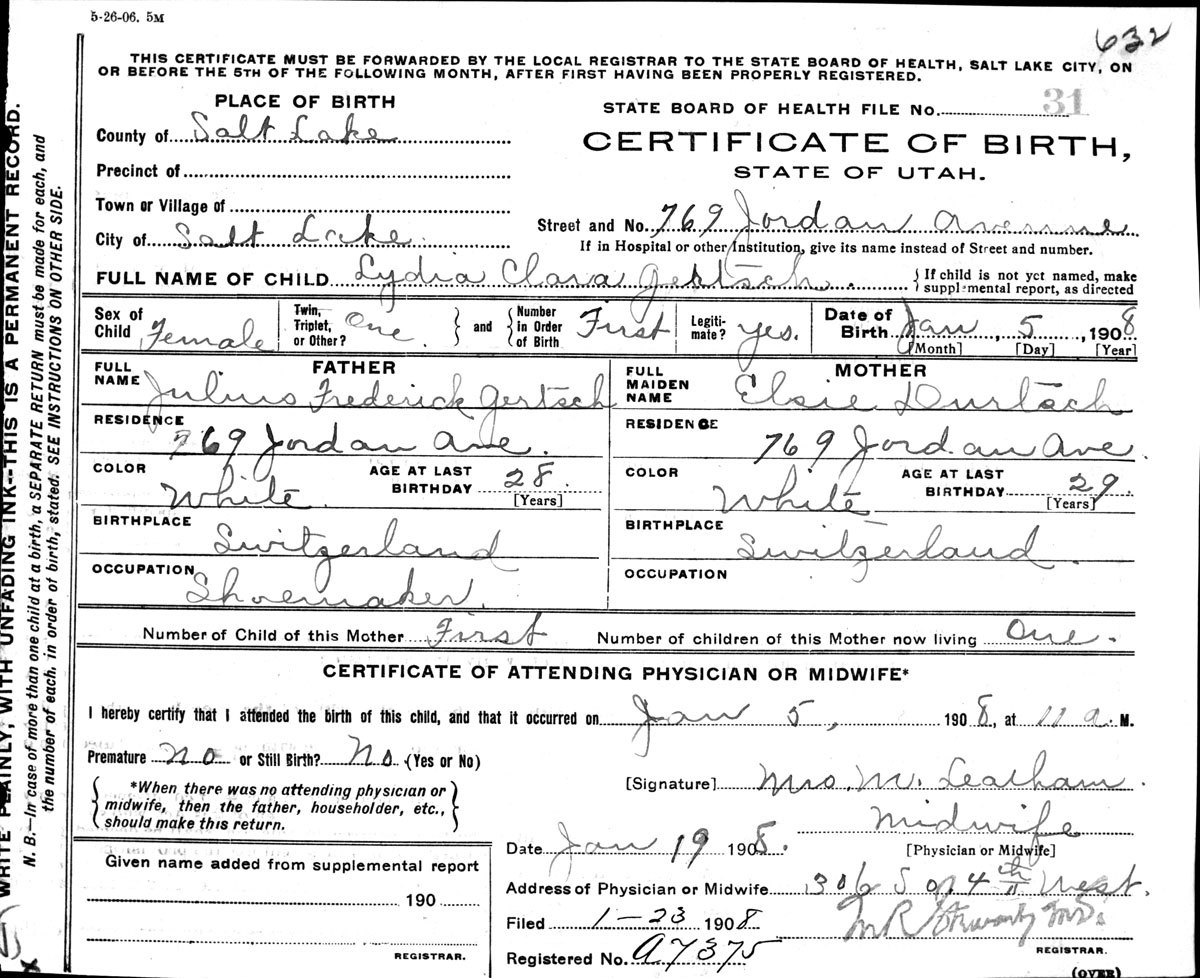 5-26-06. 5M
632
THIS CERTIFICATE MUST BE FORWARDED BY THE LOCAL REGISTRAR TO THE STATE BOARD OF HEALTH, SALT LAKE CITY, ON
OR BEFORE THE 5TH OF THE FOLLOWING MONTH, AFTER FIRST HAVING BEEN PROPERLY REGISTERED.
PLACE OF BIRTH
STATE BOARD OF HEALTH FILE No. 31
County of Salt Lake
CERTIFICATE OF BIRTH,
STATE OF UTAH.
Precinct of
Town or Village of
Street and No. 769 Jordan Avenue
City of Salt Lake
If in Hospital or other Institution, give its name instead of Street and number.
FULL NAME OF CHILD Lydia Clara Gertsch.
{ If child is not yet named, make
supplemental report, as directed
Sex of Child Female
Twin, Triplet, or Other? One. } and { Number in Order of Birth First
Legiti-mate? yes.
Date of Birth Jan, 5, 1908
[Month] [Day] [Year]
FATHER
FULL NAME Julius Frederick Gertsch
RESIDENCE
769 Jordan Ave.
COLOR White.
AGE AT LAST BIRTHDAY 28.
[Years]
BIRTHPLACE Switzerland
OCCUPATION Shoemaker.
MOTHER
FULL MAIDEN NAME Elsie Durtsch
RESIDENCE
769 Jordan Ave.
COLOR White
AGE AT LAST BIRTHDAY 29.
[Years]
BIRTHPLACE Switzerland.
OCCUPATION
Number of Child of this Mother First Number of children of this Mother now living One.
CERTIFICATE OF ATTENDING PHYSICIAN OR MIDWIFE*
I hereby certify that I attended the birth of this child, and that it occurred on Jan 5, 1908, at 11 a. M.
Premature no or Still Birth? No. (Yes or No)
{ *When there was no attending physician or
midwife, then the father, householder, etc.,
should make this return. }
[Signature] Mrs. M. Leatham.
Midwife
[Physician or Midwife]
Date Jan 19 1908.
Address of Physician or Midwife 306 So. 4th West.
Filed 1-23 1908
M.D.
REGISTRAR.
Registered No. A7375
(OVER)
Given name added from supplemental report
190
REGISTRAR.
WRITE PLAINLY, WITH UNFADING INK--THIS IS A PERMANENT RECORD.
N. B.—In case of more than one child at a birth, a SEPARATE RETURN must be made for each, and
the number of each, in order of birth, stated. SEE INSTRUCTIONS ON OTHER SIDE.